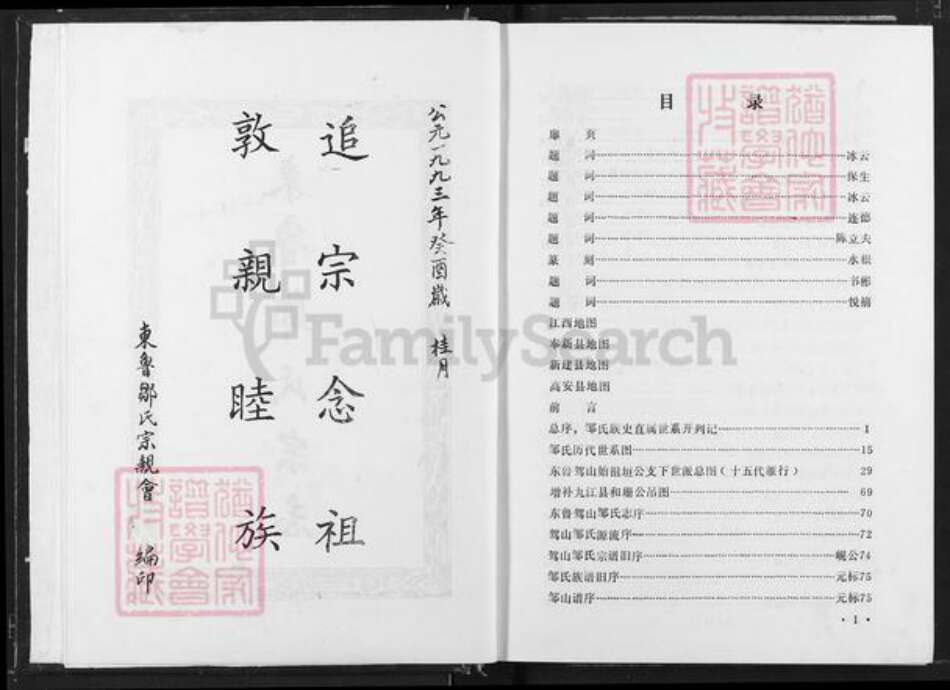 公元一九九三年癸酉歲 桂月
追宗念祖
敦親睦族
東魯鄒氏宗親會 編印
目 录
扉 页
题 词 冰云
题 词 保生
题 词 冰云
题 词 连德
题 词 陈立夫
篆 刻 水根
题 词 书彬
题 词
江西地图
奉新县地图
新建县地图
高安县地图
前 言
总序，邹氏族史直属世系开列记 1
邹氏历代世系图 15
东鲁驾山始祖垣公支下世派总图（十五代雁行） 29
增补九江县和珊公吊图 69
东鲁驾山邹氏志序 70
驾山邹氏源流序 72
驾山邹氏宗谱旧序 岘公74
邹氏族谱旧序 元标75
邹山谱序 元标75
·1·
FamilySearch